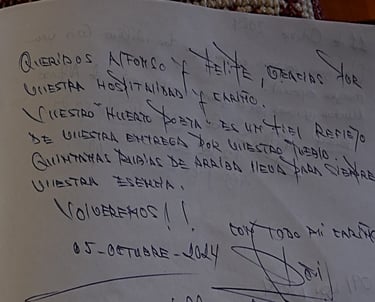 QUERIDOS ALFONSO Y FELIPE, GRACIAS POR
VUESTRA HOSPITALIDAD Y CARIÑO.
VUESTRO "HUERTO POETA" ES UN FIEL REFLEJO
DE VUESTRA ENTREGA POR VUESTRO PUEBLO.
QUINTANAS RUBIAS DE ARRIBA LLEVA PARA SIEMPRE
VUESTRA ESENCIA.
VOLVEREMOS!!
CON TODO MI CARIÑO
05-OCTUBRE-2024